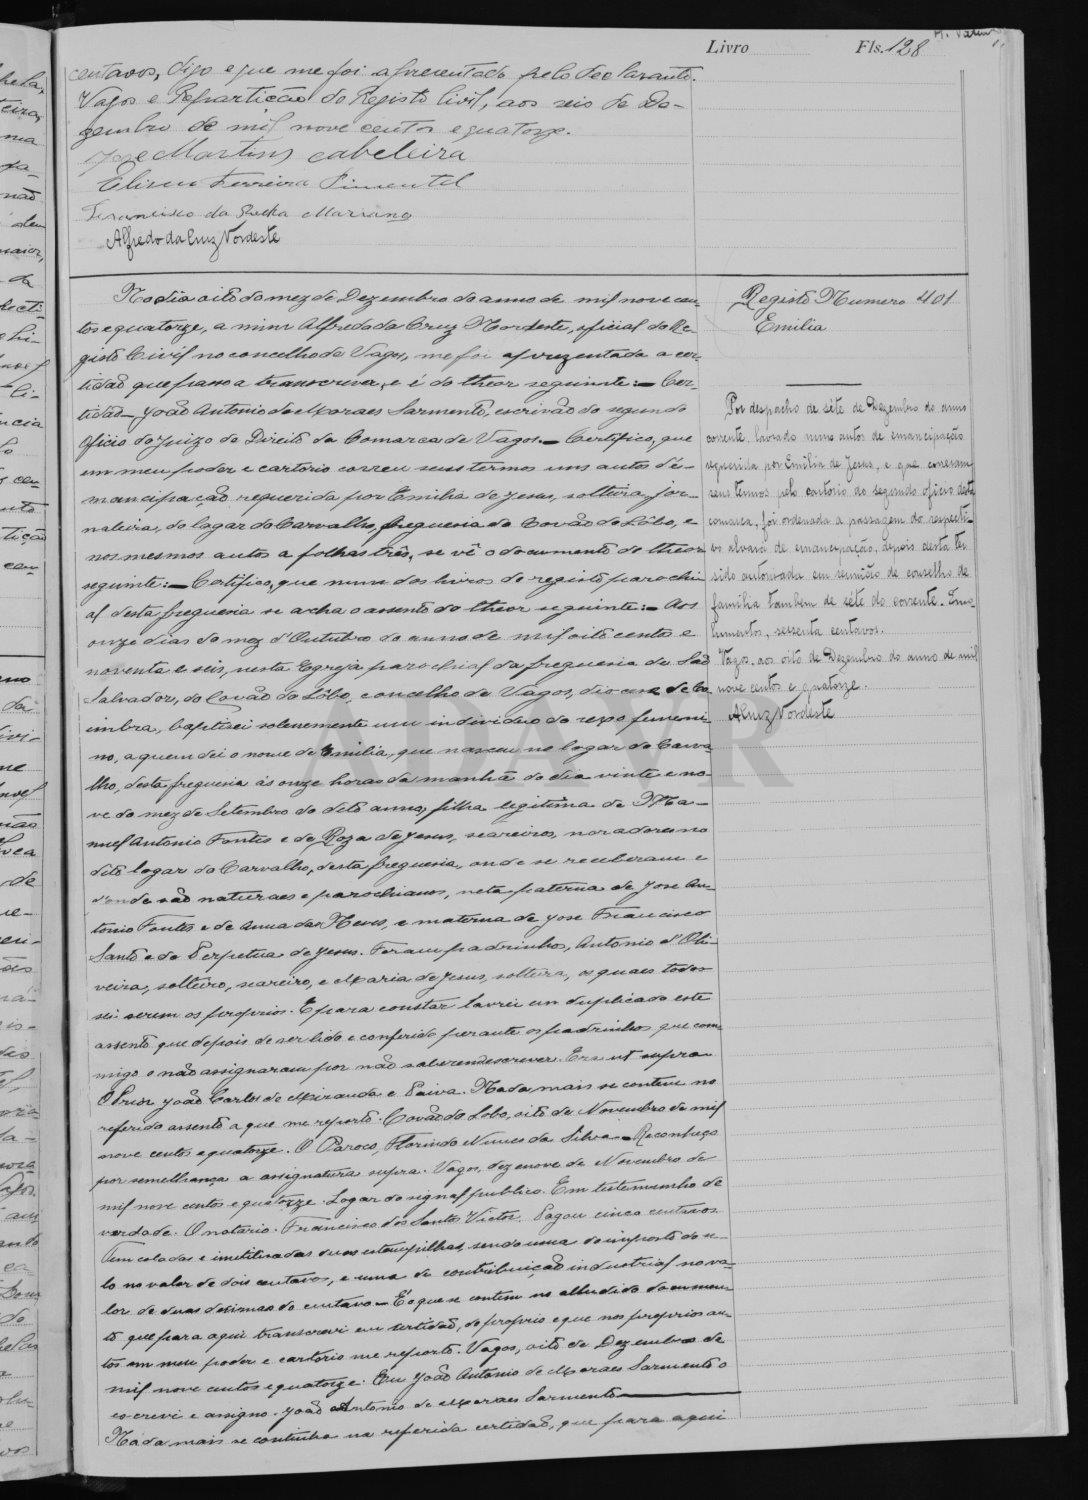 Livro Fls. 128
centavos, digo e que me foi apresentado pelo declarante.
Vagos e Repartição do Registo Civil, aos seis de De-
zembro de mil nove centos e quatorze.
José Martins Cabeleira
Eliseu Ferreira Pimentel
Francisco da Rocha Mariano
Alfredo da Cruz Nordeste
No dia oito do mez de Dezembro do anno de mil nove cen-
tos e quatorze, a mim Alfredo da Cruz Nordeste, oficial do Re-
gisto Civil no concelho de Vagos, me foi aprezentada a cer-
tidão que passo a transcrever, e é do theor seguinte:— Cer-
tidão— João Antonio de Moraes Sarmento, escrivão do segundo
oficio do Juizo de Direito da Comarca de Vagos.— Certifico, que
em meu poder e cartorio correu seus termos uns autos d'e-
mancipação requerida por Emilia de Jesus, solteira, jor-
naleira, do logar do Carvalho, freguesia do Covão do Lôbo, e
nos mesmos autos a folhas três, se vê o documento do theor
seguinte:— Certifico, que num dos livros do registo parochi-
al desta freguesia se acha o assento do theor seguinte:— Aos
onze dias do mez d'Outubro do anno de mil oito cento e
noventa e seis, nesta Egreja parochial da freguesia de São
Salvador, do Covão do Lôbo, concelho de Vagos, diocese de Co
imbra, baptisei solenemente um individuo do sexo femeni-
no, a quem dei o nome de Emilia, que nasceu no logar do Carva
lho, desta freguesia ás onze horas da manhã do dia vinte e no-
ve do mez de Setembro do dito anno, filha legitima de Ma-
nuel Antonio Fontes e de Roza de Jesus, seareiros, moradores no
dito logar do Carvalho, desta freguesia, onde se receberam e
d'onde são naturaes e parochianos, neta paterna de José An-
tonio Fontes e de Anna das Neves, e materna de José Francisco
Santo e de Perpetua de Jesus. Foram padrinhos, Antonio d'Oli-
veira, solteiro, seareiro, e Maria de Jesus, solteira, os quaes todos
sei serem os proprios. E para constar lavrei em duplicado este
assento que depois de ser lido e conferido perante os padrinhos, que com
migo o não assignaram por não saberem escrever. Era ut supra
O Prior João Carlos de Miranda e Paiva. Nada mais se contem no
referido assento a que me reporto. Covão do Lobo, oito de Novembro de mil
nove centos e quatorze. O Paroco, Florindo Nunes da Silva.— Reconheço
por semelhança a assignatura supra. Vagos, dezenove de Novembro de
mil nove centos e quatorze. Logar do signal publico. Em testemunho de
verdade. O notario. Francisco dos Santos Victor. Pagou cinco centavos.
Tem coladas e inutilisadas duas estampilhas, sendo uma do imposto do se-
lo no valor de dois centavos, e uma de contribuição industrial no va-
lor de duas decimas do centavo.— É o que se contem no alludido documen-
to que para aqui transcrevi em certidão, do proprio e que nos proprios au-
tos em meu poder e cartorio me reporto. Vagos, oito de Dezembro de
mil nove centos e quatorze. Eu João Antonio de Moraes Sarmento o
escrevi e assigno. João Antonio de Moraes Sarmento
Nada mais se continha na referida certidão, que para aqui
Registo Numero 401
Emilia
Por despacho de sête de Dezembro do anno
corrente, lavrado nuns autos de emancipação
requerida por Emilia de Jesus, e que correram
seus termos pelo cartorio do segundo oficio desta
comarca, foi ordenada a passagem do respecti-
vo alvará de emancipação, depois desta ter
sido autorisada em reunião de conselho de
familia tambem de sête do corrente. Emo-
lumentos, sessenta centavos.
Vagos, aos oito de Dezembro do anno de mil
nove centos e quatorze.
ACruz Nordeste
ADAVR